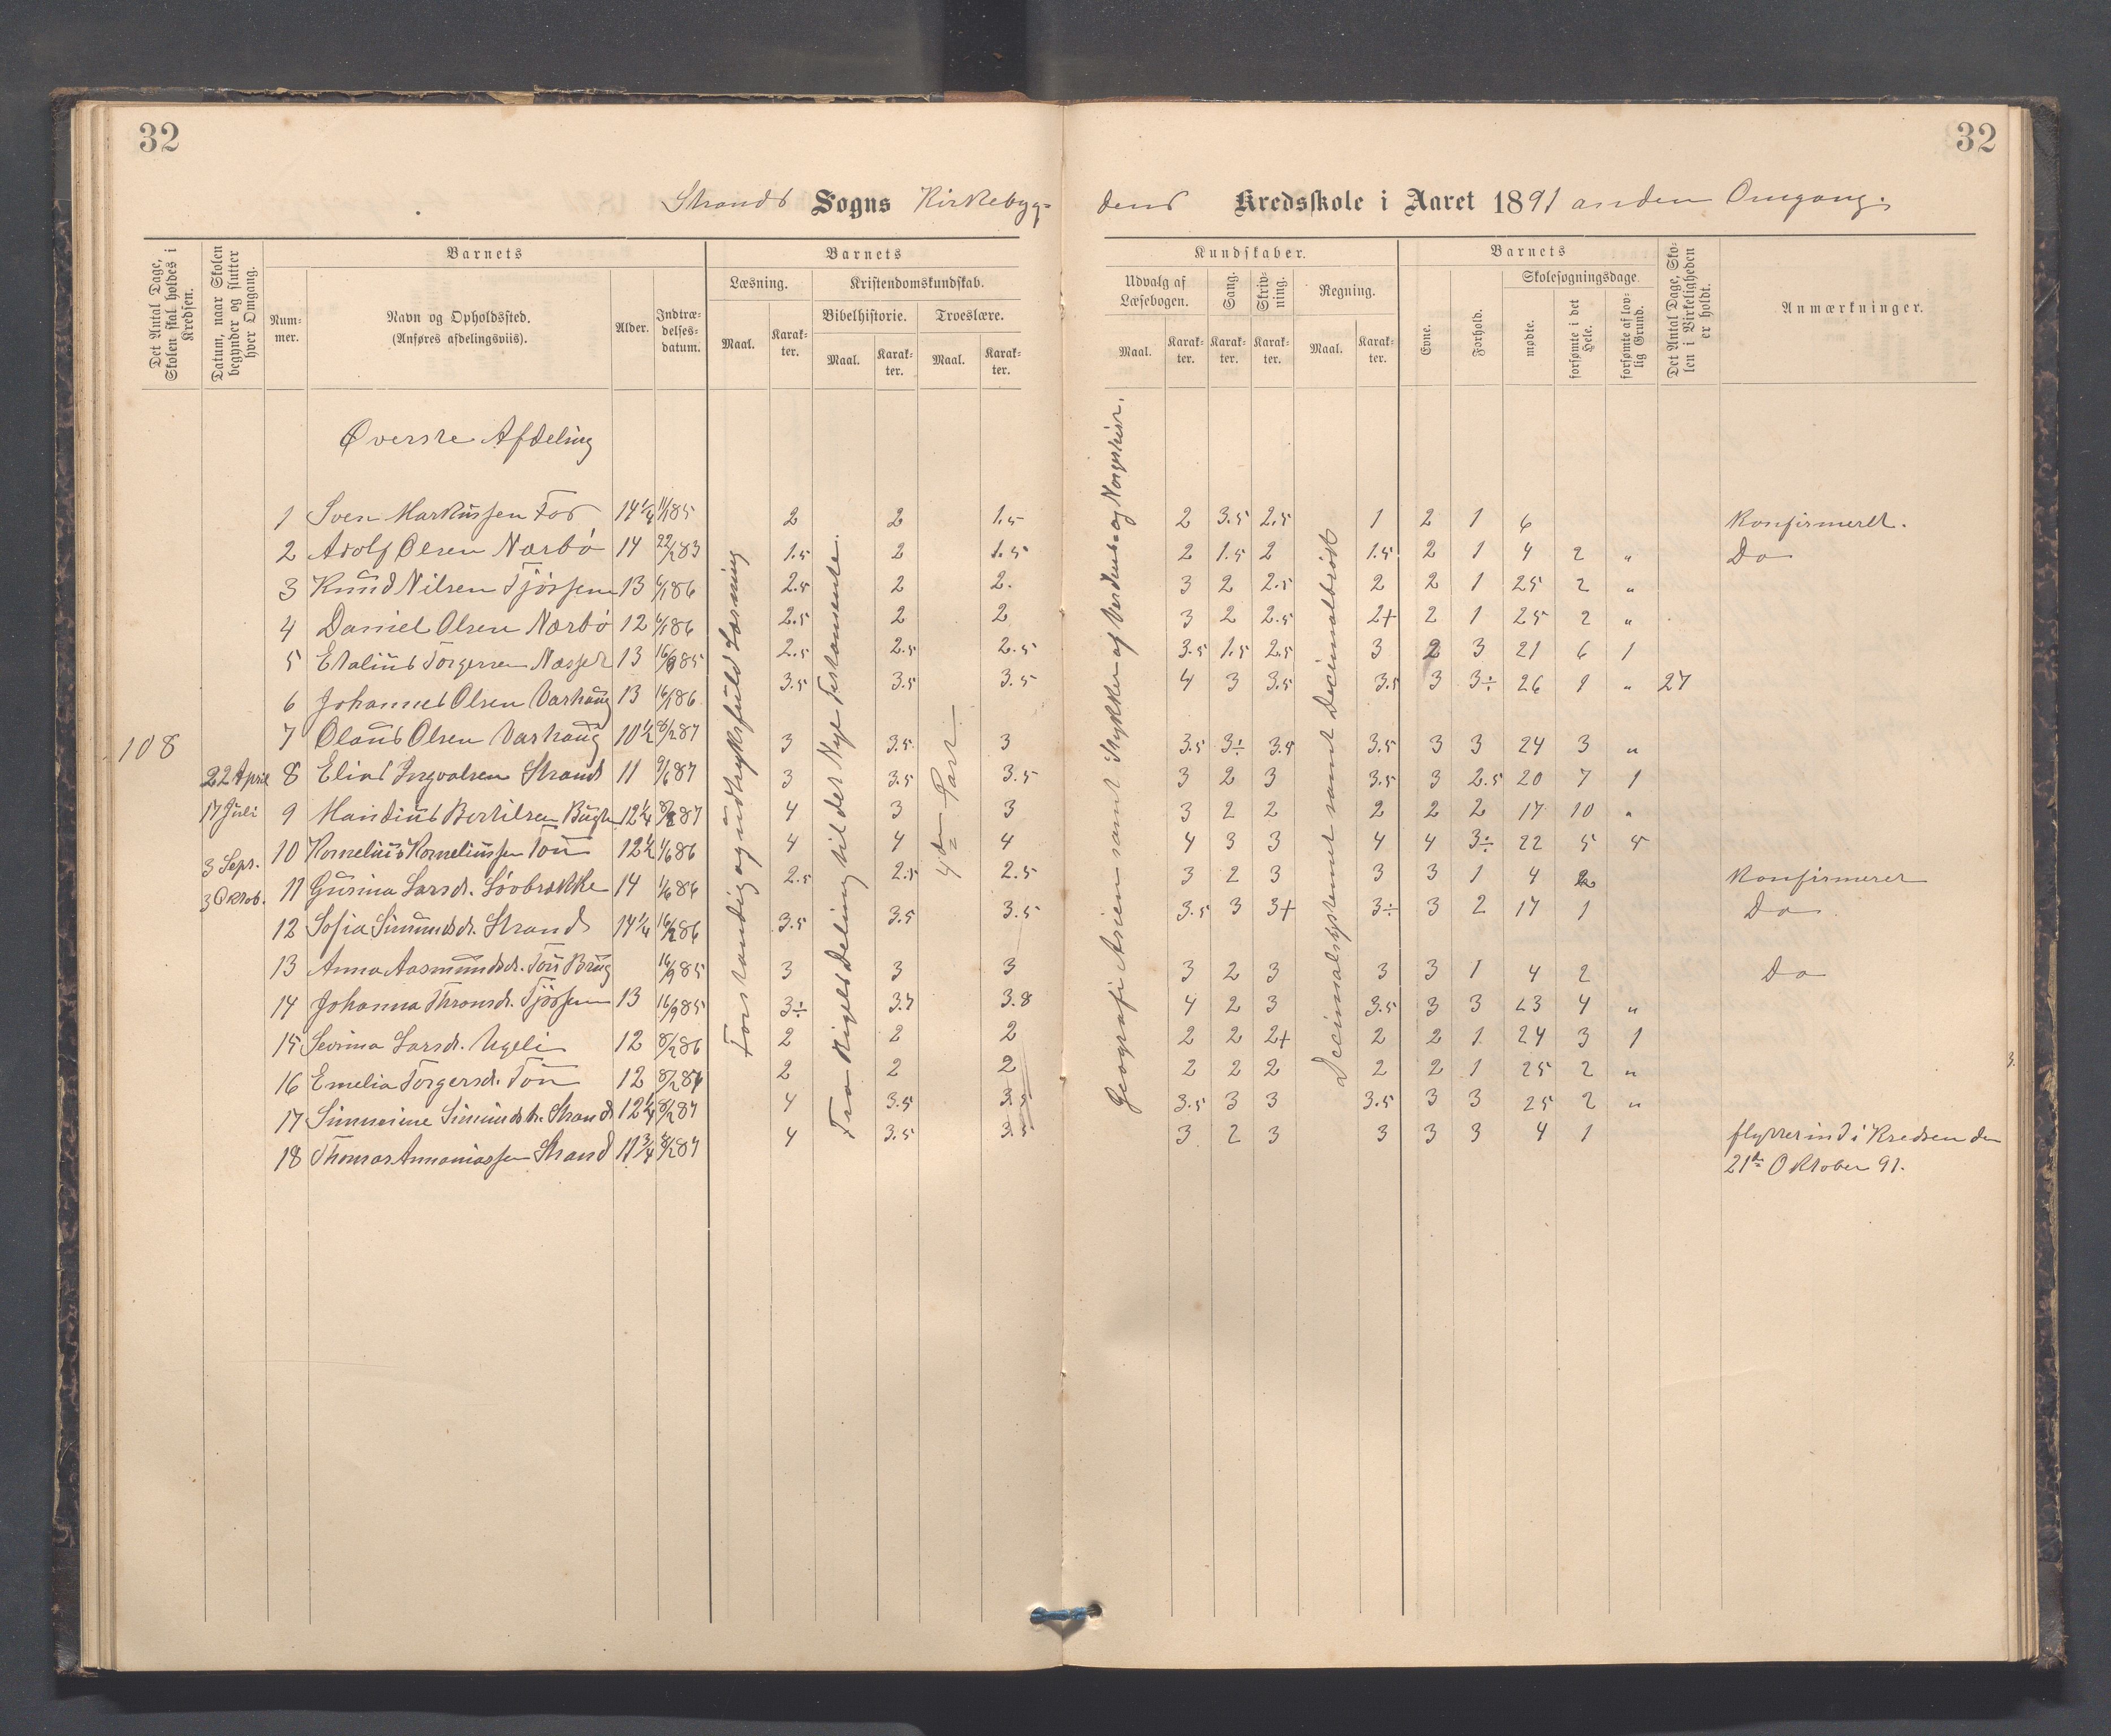 32
32
Strands Sogns Kirkebyg-
dens Kredsskole i Aaret 1891 anden Omgang.
Det Antal Dage, Skolen skal holdes i Kredsen.
Datum, naar Skolen begynder og slutter hver Omgang.
Barnets
Num-mer.
Navn og Opholdssted.
(Anføres afdelingsviis).
Alder.
Indtræ-delses-datum.
Barnets
Læsning.
Maal.
Karak-ter.
Kristendomskundskab.
Bibelhistorie.
Maal.
Karak-ter.
Troeslære.
Maal.
Karak-ter.
Kundskaber.
Udvalg af Læsebogen.
Maal.
Karak-ter.
Sang.
Karak-ter.
Skriv-ning.
Karak-ter.
Regning.
Maal.
Karak-ter.
Barnets
Evne.
Forhold.
Skolesøgningsdage.
mødte.
forsømte i det Hele.
forsømte af lov-lig Grund.
Det Antal Dage, Sko-len i Virkeligheden er holdt.
Anmærkninger.
Øverste Afdeling
108
22 April
17 Juli
3 Sept.
3 Oktob.
Forstandig og udtryksfuld Læsning
Fra Rigets Deling til det Nye Testamente.
4de Part
Geografi Asien samt Stykker af Verdens- og Norgeshist.
Decimalsystemet samt Decimalbrøk
1 Sven Markussen Fos 14 1/4 1/1 85 2 2 1.5 2 3.5 2.5 1 2 1 6 Konfirmeret.
2 Adolf Olsen Nærbø 14 22/2 83 1.5 2 1.5 2 1.5 2 1.5 2 1 4 2 " Do
3 Knud Nilsen Tjøssem 13 6/1 86 2.5 2 2. 3 2 2.5 2 2 1 25 2 "
4 Daniel Olsen Nærbø 12 6/1 86 2.5 2 2 3 2 2.5 2+ 2 1 25 2 "
5 Etalius Torgersen Næsset 13 16/9 85 2.5 2.5 2.5 3.5 1.5 2.5 3 2 3 21 6 1
6 Johannes Olsen Varhaug 13 16/1 86 3.5 3.5 3.5 4 3 3.5 3.5 3 3÷ 26 1 " 27
7 Olaus Olsen Varhaug 10 1/2 8/2 87 3 3.5 3 3.5 3÷ 3.5 3.5 3 3 24 3 "
8 Elias Ingvalsen Strand 11 9/6 87 3 3.5 3.5 3 2 3 3.5 3 2.5 20 7 1
9 Mandius Bertilsen 12 1/4 87 4 3 3 3 2 2 2 2 2 17 10 "
10 Kornelius Korneliussen Tou 12 1/2 1/6 86 4 4 4 4 3 3 4 4 3÷ 22 5 5
11 Gurina Larsdr. Løvbrække 14 1/6 86 2.5 2.5 2.5 3 2 3 3 3 1 4 2 Konfirmeret
12 Sofia Simundsdr. Strand 14 1/4 16/2 86 3.5 3.5 3.5 3.5 3 3+ 3÷ 3 2 17 1 Do.
13 Anna Aasmundsdr. Tou Brug 16/9 85 3 3 3 3 2 3 3 3 1 4 2 Do
14 Johanna Thronsdr. Tjøssem 13 16/9 85 3÷ 3.7 3.8 4 2 3 3.5 3 3 23 4 "
15 Sevrina Larsdr. Ugeli 12 8/2 86 2 2 2 2 2 2+ 2 2 1 24 3 1
16 Emelia Torgersdr. Tou 12 8/2 86 2 2 2 2 2 2 2 2 1 25 2 "
17 Simmerine Simundsdr. Strand 12 1/4 8/2 87 4 3.5 3.5 3.5 3 3 3.5 3 3 25 2 "
18 Thomas Annaniassen Strand 11 3/4 8/2 87 4 3.5 3.5 3 2 3 3 3 3 4 1 flyttet ind i Kredsen den
21de Oktober 91.